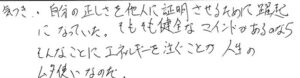 気づき・自分の正しさを他人に証明させるために躍起
になっていた。そもそも健全なマインドがあるのなら
そんなことにエネルギーを注ぐことが人生の
ムダ使いなのだ。